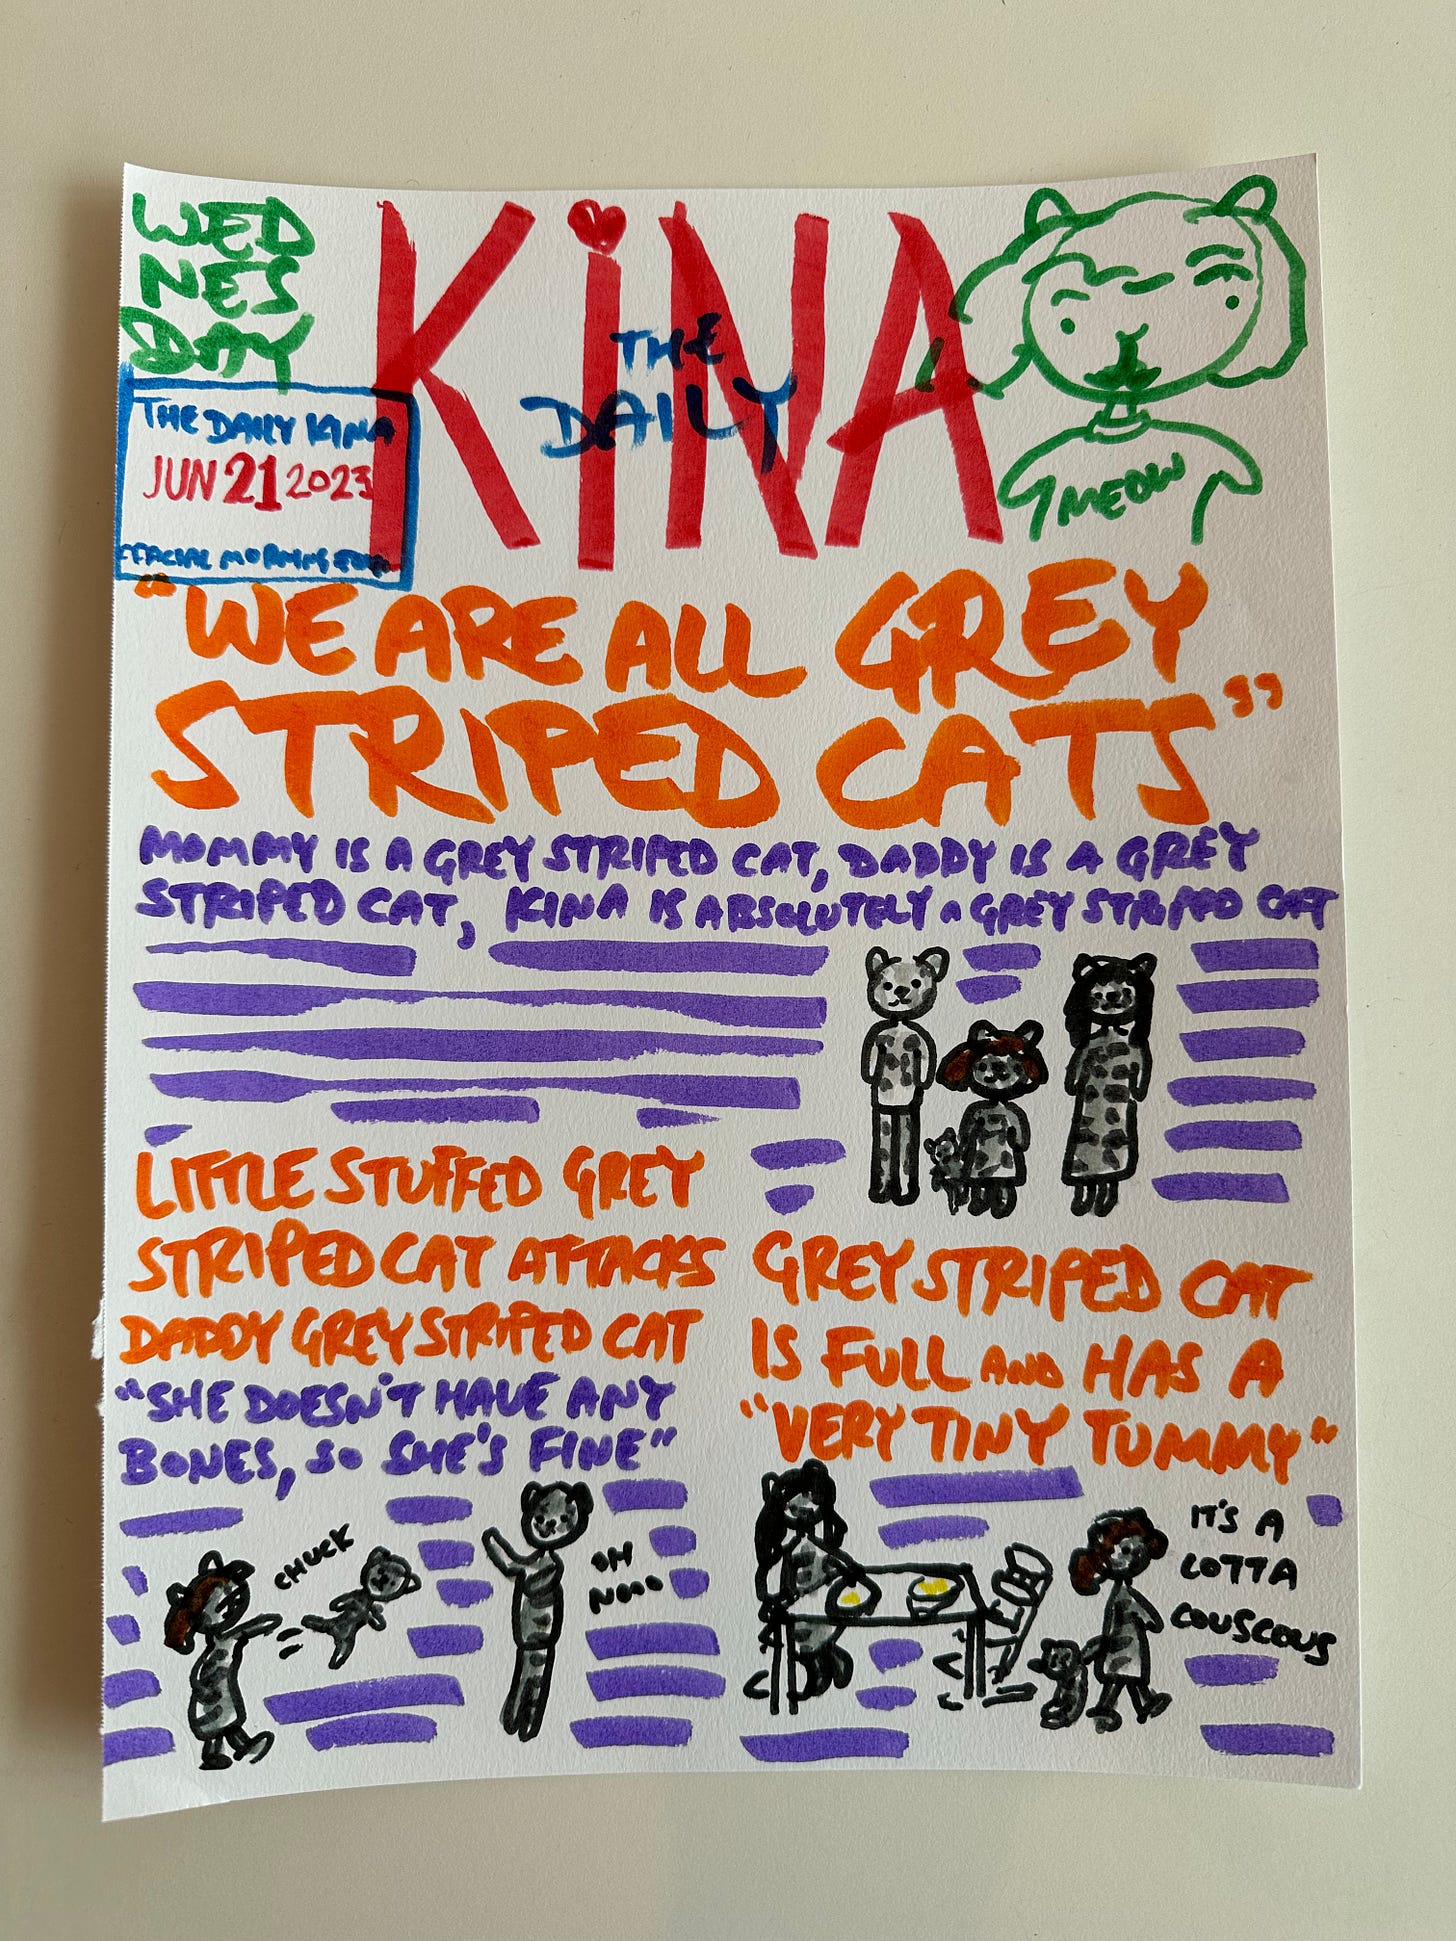 WED
NES
DAY
THE DAILY KINA
JUN 21 2023
MORNING
KiNA
THE
DAILY
MEOW
"WE ARE ALL GREY
STRIPED CATS"
MOMMY IS A GREY STRIPED CAT, DADDY IS A GREY
STRIPED CAT, KINA IS ABSOLUTELY A GREY STRIPED CAT
LITTLE STUFFED GREY
STRIPED CAT ATTACKS
DADDY GREY STRIPED CAT
"SHE DOESN'T HAVE ANY
BONES, SO SHE'S FINE"
CHUCK
OH
NOOO
GREY STRIPED CAT
IS FULL AND HAS A
"VERY TINY TUMMY"
IT'S A
LOTTA
COUSCOUS